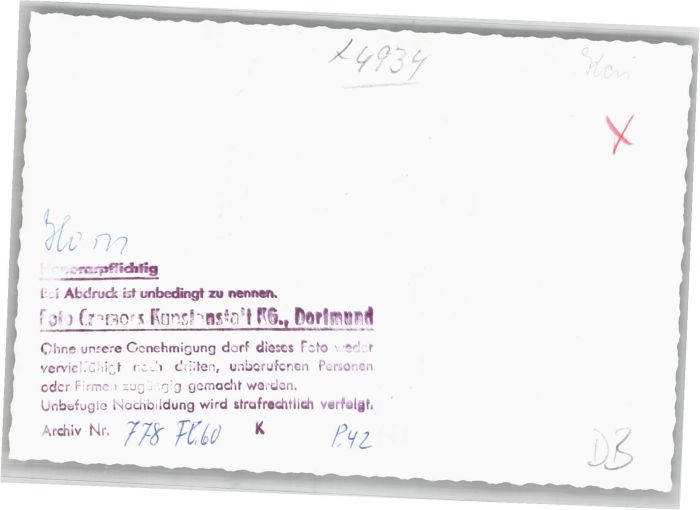 x4934
x
Honorarpflichtig
Bei Abdruck ist unbedingt zu nennen.
Foto Kunstanstalt KG., Dortmund
Ohne unsere Genehmigung darf dieses Foto weder
vervielfältigt noch dritten, unberufenen Personen
oder Firmen zugängig gemacht werden.
Unbefugte Nachbildung wird strafrechtlich verfolgt.
Archiv Nr. 778 K P.42
DB